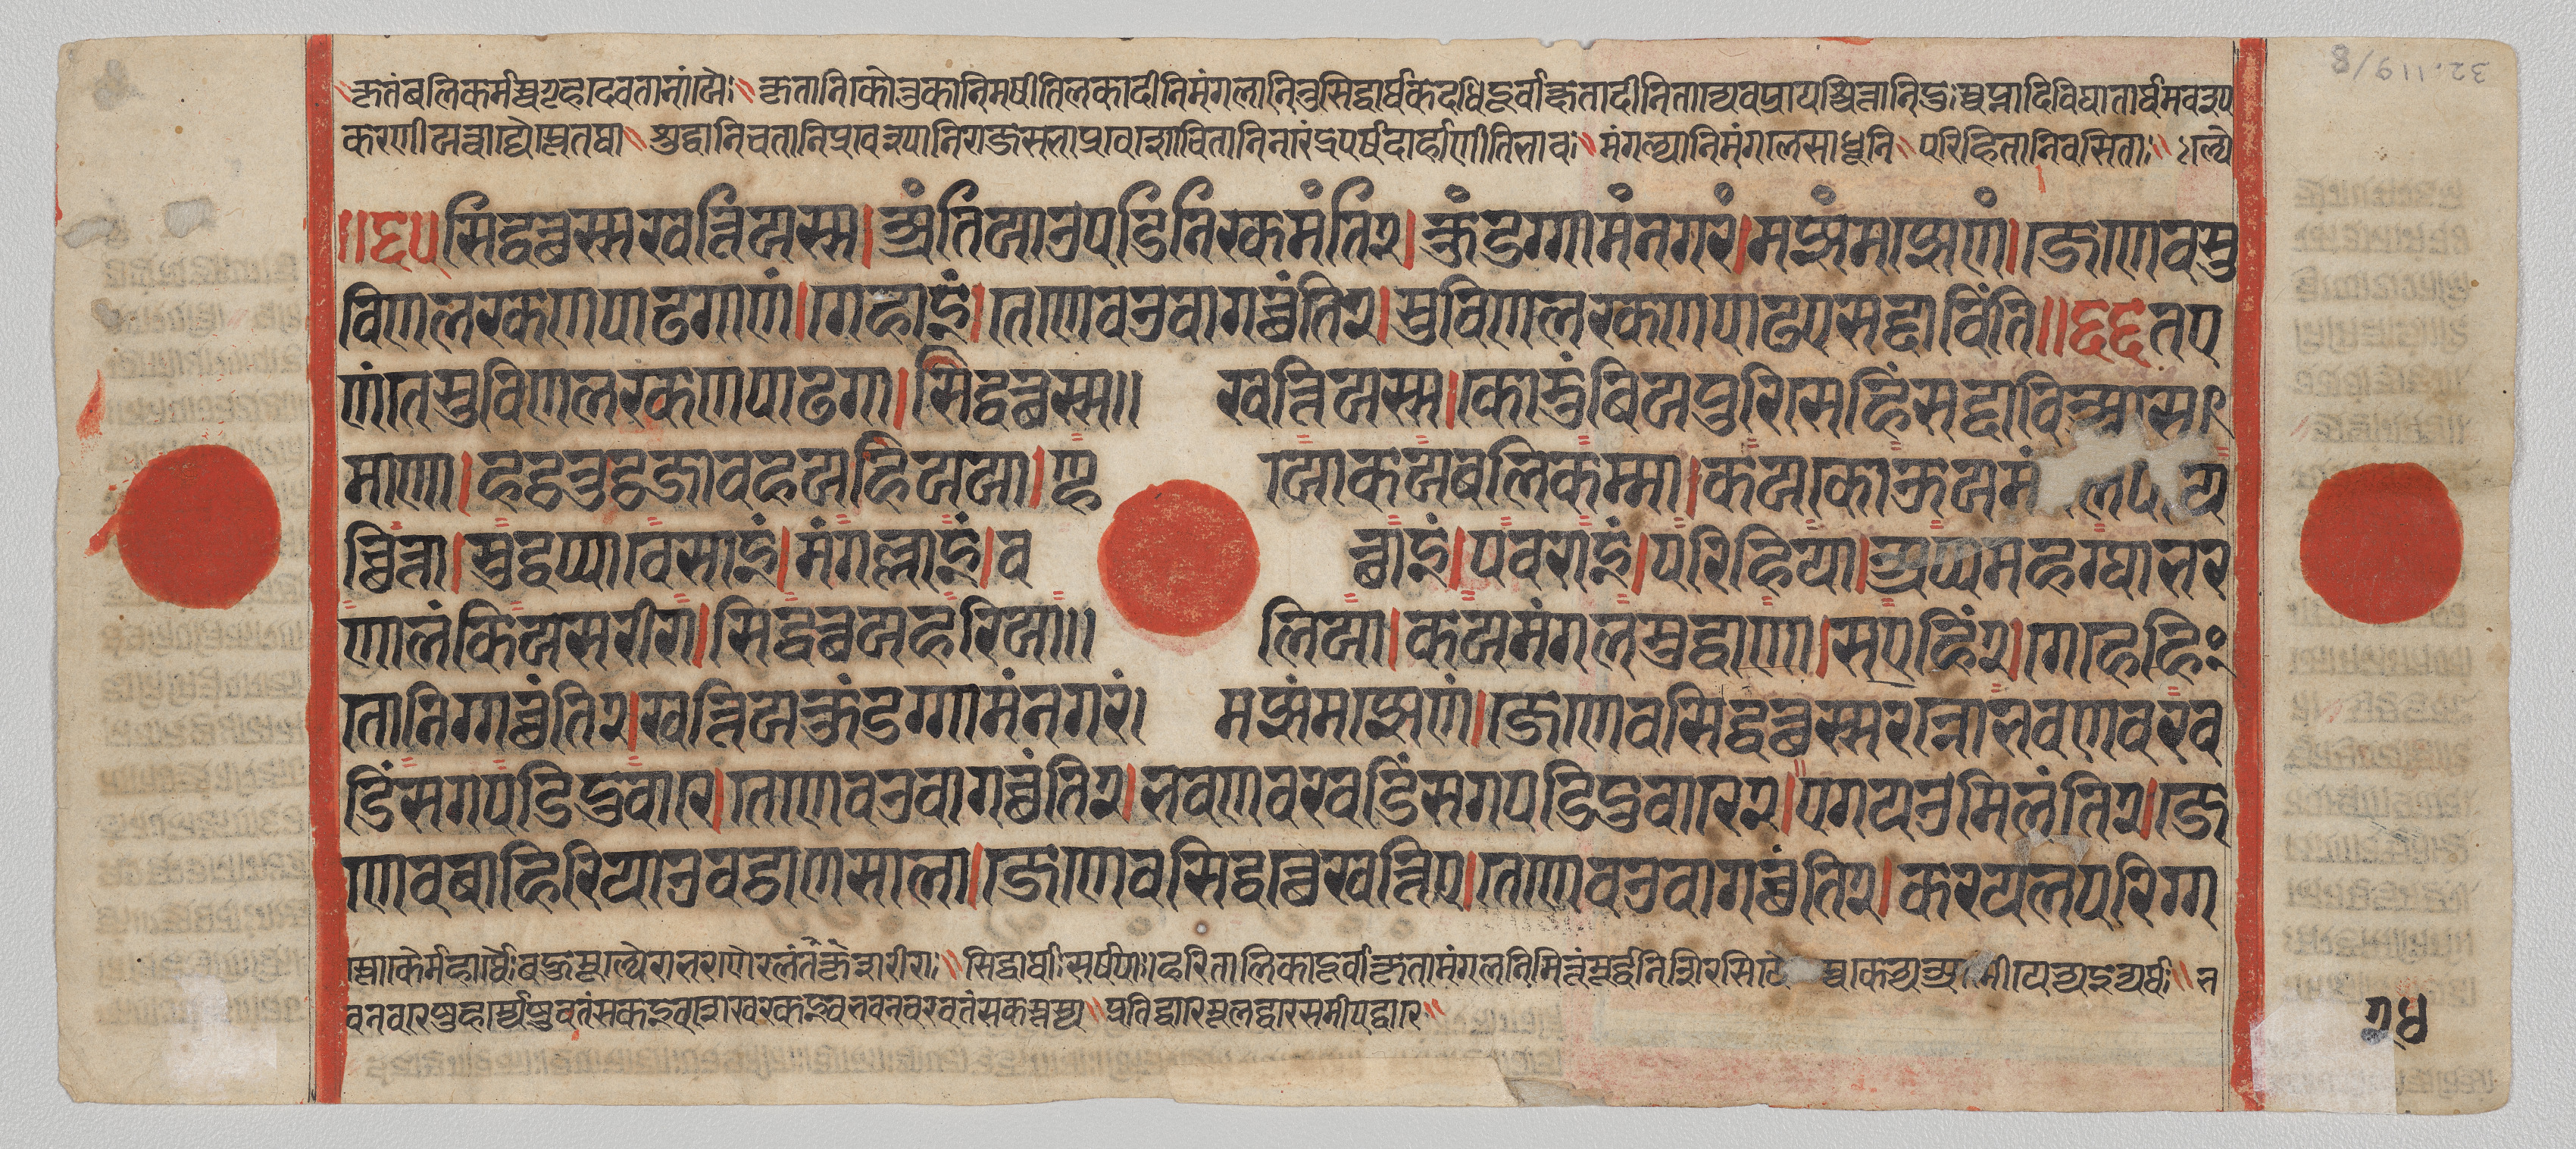 कृतं बलिकर्म स्वगृहदेवतानां यैः॥ कृतानि कौतुकानि मषीतिलकादीनि मंगलानि तु सिद्धार्थकदधिदूर्वाक्षतादीनि तान्येव प्रायश्चित्तानि दुःस्वप्नादिविघातार्थमवश्य
करणीयत्वाद्यैस्ते तथा॥ शुद्धानि च तानि प्रावेश्यानि राजसभाप्रवेशोचितानि मंगल्यानि मंगलसाधूनि॥ परिहितानि वसिताः॥
॥६५ सिद्धत्थस्स खत्तियस्स। अंतियाउ पडिनिरकमंति२। कुंडग्गामं नगरं। मज्झंमज्झेणं। जेणेव सु
विणलरकणपाढगाणं। गेहाइं। तेणेव उवागच्छंति२। सुविणलरकणपाढए सद्दाविंति॥६६ तए
णं ते सुविणलरकणपाढगा। सिद्धत्थस्स॥ खत्तियस्स। कोडुंबियपुरिसेहिं सद्दाविआ स
माणा। हट्ठतुट्ठजावहयहियया। ण्हाया कयबलिकम्मा। कयकोऊयमं लपाय
च्छित्ता। सुद्धप्पावेसाइं। मंगल्लाइं। वत्थाइं। पवराइं। परिहिया। अप्पमहग्घाभर
णालंकियसरीरा। सिद्धत्थयहरिया॥ लिया। कयमंगलमुद्धाणा। सएहिं२। गेहेहिं
तो निग्गच्छंति२। खत्तियकुंडग्गामं नगरं। मज्झंमज्झेणं। जेणेव सिद्धत्थस्स रन्नो भवणवरव
डिंसगपडिदुवारे। तेणेव उवागच्छंति२। भवणवरवडिंसगपडिदुवारे२। एगयउ मिलंति२। जे
णेव बाहिरिया उवट्ठाणसाला। जेणेव सिद्धत्थे खत्तिए। तेणेव उवागच्छंति२। करयलपरिग्ग
सिद्धार्थाः सर्षपाः। हरितालिका दूर्वा कृता मंगलनिमित्तं मूर्द्धनि शिरसि
प्रतिद्वारे मूलद्वारसमीपद्वारे॥
७५
32.119/8